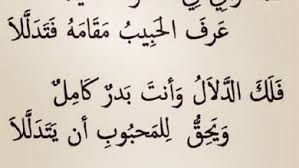 عَرَفَ الحَبِيبُ مَقَامَهُ فَتَدَلَّلاَ
فَلَكَ الدَّلاَلُ وَأَنتَ بَدرٌ كَامِلٌ
وَيَحِقُّ لِلمَحبُوبِ أن يَتَدَلَّلاَ